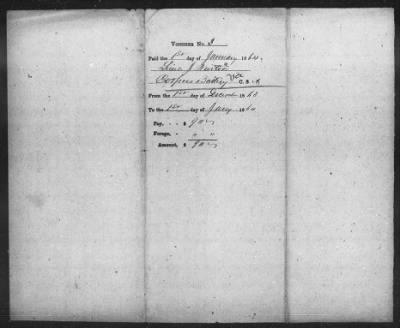 Voucher No. 3
Paid the 1st day of January 1864,
Cooper's Battery Va C. S. A
From the 1st day of Decem 1863
To the 1st day of Jany 1864
Pay, - - $ 90 "
Forage, - " "
Amount, $ 90 "